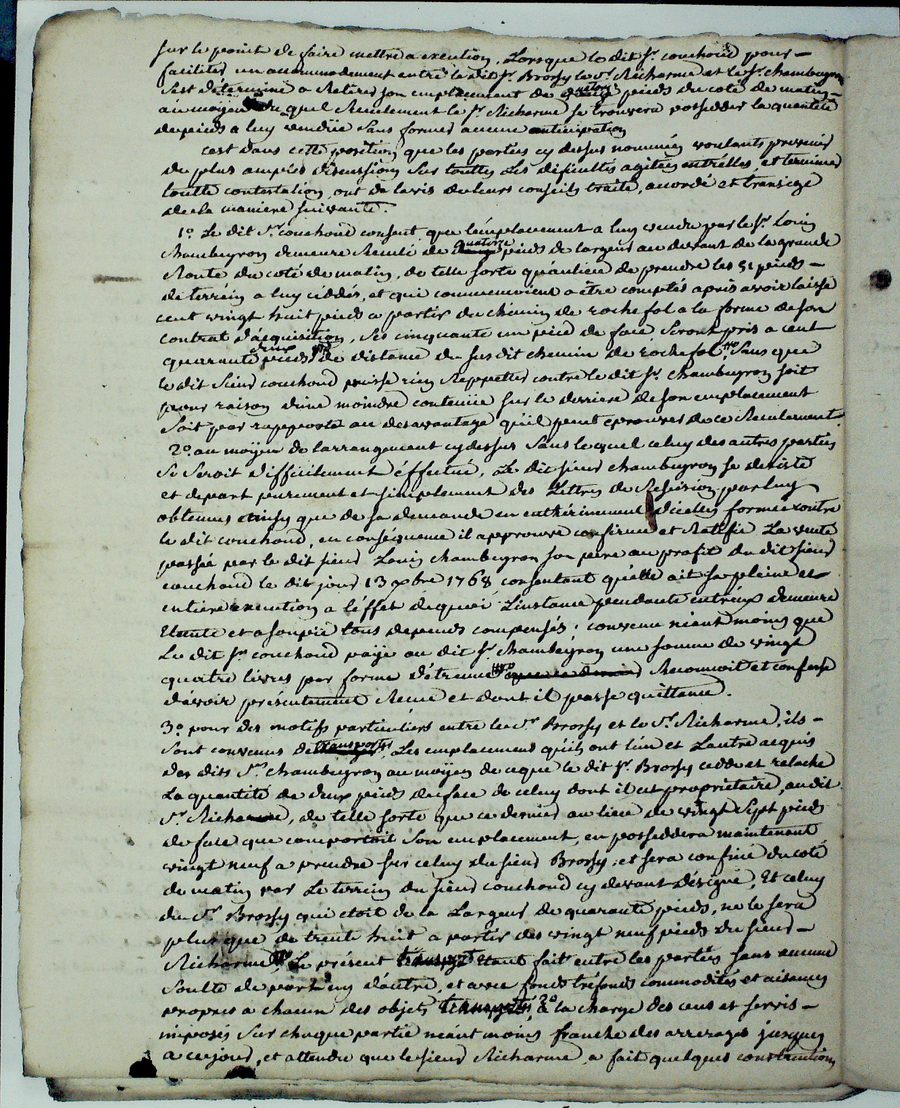 sur le point de faire mettre a exeution, Lorsque le dit sr. couchoud pour
faciliter un accommodement entre le dit sr. Brossy le sr. Richarme et le sr. chambeyron
s'est déterminé a Retirer son emplacement de quatorze pieds du coté de matin,
au moyen du quel Reculement le sr. Richarme se trouvera posseder la quantité
de pieds a luy vendüe sans former aucune anticipation
c'est dans cette position que les parties cy dessus nommées voulants prevenir
de plus amples discussions sur touttes Les dificultés agitées entr'elles et terminer
toutte contestation, ont de l'avis de leurs conseils traité, accordé et transigé
de la maniere suivante.
1o. Le dit sr. couchoud consent que l'emplacement a luy vendu par le sr. Louis
Chambeyron demeure Reculé de quatorze pieds de largeur au devant de la grande
Route du coté de matin, de telle sorte qu'au lieu de prendre les 51 pieds
de terrein a luy cédés, et qui commencoient a être comptés apres avoir laissé
cent vingt huit pieds a partir du chemin de rochefol a la forme de son
contrat d'acquisition, ses cinquante un pied de face seront pris a cent
quarante deux pieds de distance du susdit chemin de rochefol, sans que
le dit sieur couchoud puisse rien Reppetter contre le dit sr. chambeyron soit
pour raison d'une moindre contenüe sur le derriere de son emplacement
soit par rapport au desavantage qu'il peut eprouver de ce Reculement.
2o. au moÿen de l'arrangement cy dessus sans lequel celuy des autres parties
se seroit difficilement éffectué, Le dit sieur chambeyron se desiste
et depart purement et simplement des Lettres de Resision par luy
obtenus ainsy que de sa demande en enthérinement d'icelles formée contre
le dit couchoud, en consequence il approuve confirme et Ratifie La vente
passée par le dit sieur Louis chambeyron son pere au profit du dit sieur
couchoud le dit jour 13 xbre 1768 consentant qu'elle ait sa pleine et
entiere execution a l'éffet de quoi L'instance pendante entr'eux demeure
Eteinte et asoupie tous depends compensés; convenu néant moins que
Le dit sr. couchoud paye au dit sr. chambeyron une somme de vingt
quatre livres par forme d'étrenne Reconnoit et confesse
d'avoir présentement Recue et dont il passe quittance.
3o. pour des motifs particuliers entre le sr. Brossy et le sr. Richarme, ils
sont convenus de Les emplacement qu'ils ont l'un et L'autre acquis
des dits srs. chambeyron au moyen de ce que le dit sr. Brossy cedde et relache
La quantité de deux pieds de face de celuy dont il est proprietaire, au dit
sr. Richarme, de telle sorte que ce dernier au lieu de vingt sept pieds
de face que comportoit son emplacement, en posseddera maintenant
vingt neuf a prendre sur celuy du sieur Brossy, et sera confiné du coté
de matin par Le terrein du sieur couchoud cy devant désigné, Et celuy
du sr. Brossy qui etoit de la Largeur de quarante pieds, ne le sera
plus que de trente huit a partir des vingt neuf pieds du sieur
Richarme, Le présent fait entre les parties sans aucune
soulte de part ny d'autre, et avec fonds tréfonds commodités et aisances
propres a chacun des objets a la charge des cens et servis
imposés sur chaque partie néant moins franche des arrerages jusques
a ce jour, et attendu que le sieur Richarme a fait quelques constructions